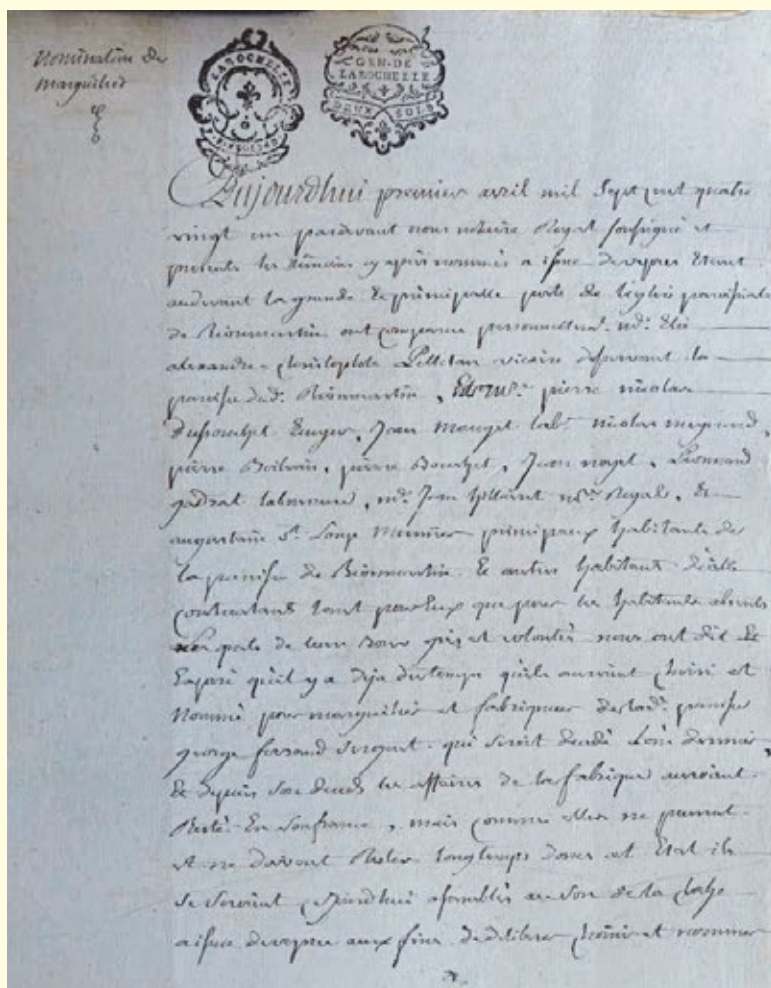 Nomination de
marguilier
LAROCHELLE
GEN. DE
LAROCHELLE
DEUX SOLS
Aujourdhui premier avril mil Sept cent quatre
vingt un pardevant nous notaire Royal soussigné et
presents les témoins cy après nommés a issue de vepres Etant
audevant la grande & principalle porte de léglise paroissiale
de Rioumartin ont comparu personnellemt. md.
alexandre christophle Pelletan vicaire desservant la
paroisse dud. Rioumartin, pierre nicolas
Jean Mouget labr. nicolas
pierre Boilvin, pierre Bouchet, Jean noget, Léonnard
gadrat laboureurs, md. Jean nre. Royal, &
augustain St. Loup Meunier principaux habitants de
la paroisse de Rioumartin & autres habitants d'icelle
contractants tant pour Eux que pour les habitants absents
Lesquels de leurs bons grés et volontés nous ont dit Et
Exposé qu'il y a déja dutemps qu'ils auroient choisi et
Nommé pour marguilier et fabriqueur de lad. paroisse
george ferrand sergent qui seroit décédé L'on dernier,
& depuis son deceds les affaires de la fabrique auroient
Resté En soufrance, mais comme elles ne peuvent
et ne doivent Rester longtemps dans cet Etat ils
se seroient cejourdhui assemblés au son de la cloche
a issue de vepres aux fins de deliberer choisir et nommer